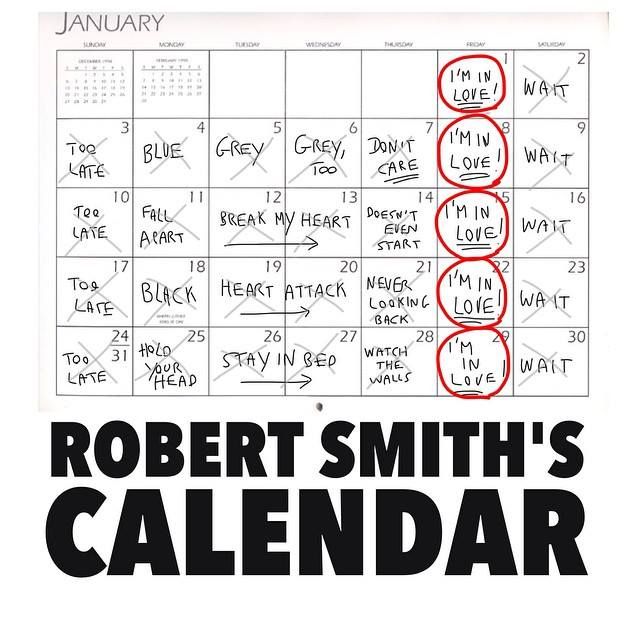 JANUARY
SUNDAY MONDAY TUESDAY WEDNESDAY THURSDAY FRIDAY SATURDAY
DECEMBER
FEBRUARY
1
I'M IN
LOVE!
2
WAIT
3
TOO
LATE
4
BLUE
5
GREY
6
GREY,
TOO
7
DON'T
CARE
8
I'M IN
LOVE!
9
WAIT
10
TOO
LATE
11
FALL
APART
12 13
BREAK MY HEART
14
DOESN'T
EVEN
START
15
I'M IN
LOVE!
16
WAIT
17
TOO
LATE
18
BLACK
19 20
HEART ATTACK
21
NEVER
LOOKING
BACK
22
I'M IN
LOVE!
23
WAIT
24
31
TOO
LATE
25
HOLD
YOUR
HEAD
26 27
STAY IN BED
28
WATCH
THE
WALLS
29
I'M
IN
LOVE!
30
WAIT
ROBERT SMITH'S
CALENDAR